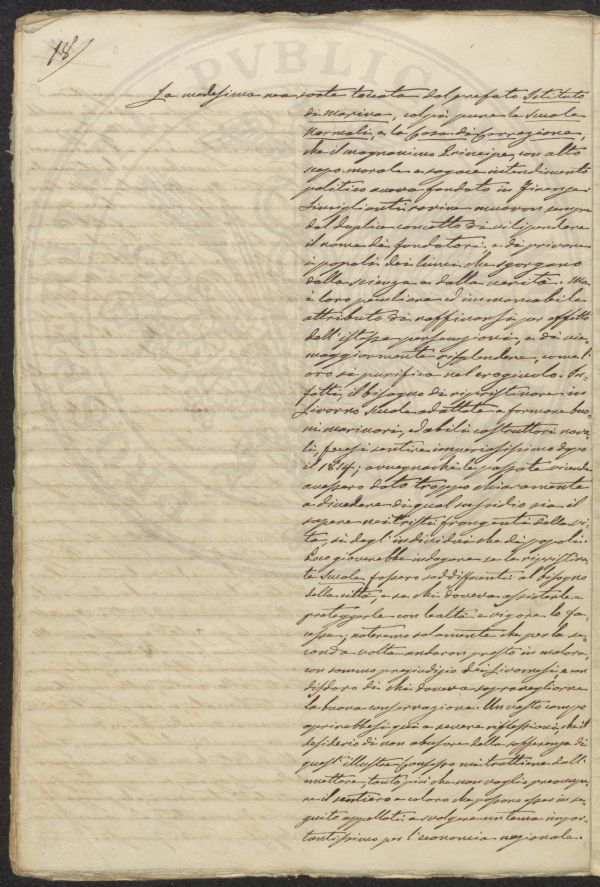 18/
La medesima rea sorte toccata dal prefato Istituto
di marina, colpì pure le Scuole
normali, e la Casa di Correzione,
che il magnanimo Principe, con alto
scopo morale e sagace intendimento
politico aveva fondato in Firenze.
Simiglianti rovine muovon sempre
dal duplice concetto di vilipendere
il nome dei fondatori, e di privare
i popoli dei lumi che sgorgano
dalla scienza e dalla verità. Ma
è loro peculiare ed immancabile
attributo di raffinarsi per effetto
dell'istesse persecuzioni, e di vie
maggiormente risplendere, come l'
oro si purifica nel crogiuolo. In-
fatti, il bisogno di ripristinare in
Livorno Scuole adattate a formare buo-
ni marinari, ed abili costruttori nava-
li, fecesi sentire imperiosissimo dopo
il 1814; avvegnachè le passate vicende
avessero dato troppo chiaramente
a divedere di qual sussidio sia il
sapere nei tristi frangenti della vi-
ta, sì degl'individui che dei popoli.
Poco gioverebbe indagare se le ripristina-
te Scuole, fossero soddisfacenti al bisogno
della città, e se chi doveva assisterle e
proteggerle con lealtà e vigore lo fa-
cesse; noteremo solamente che per la se-
conda volta andaron presto in malora,
con sommo pregiudizio dei Livornesi, e con
disdoro di chi doveva sopravegliarne
la buona conservazione. Un vasto campo
aprirebbesi quì a severe riflessioni, che il
desiderio di non abusare della sofferenza di
quest'illustre Consesso mi trattiene dall'
emettere, tanto più che non voglio preoccupa-
re il sentiero a coloro che possono esser in se-
guito appellati a svolgere un tema impor-
tantissimo per l'economia nazionale.